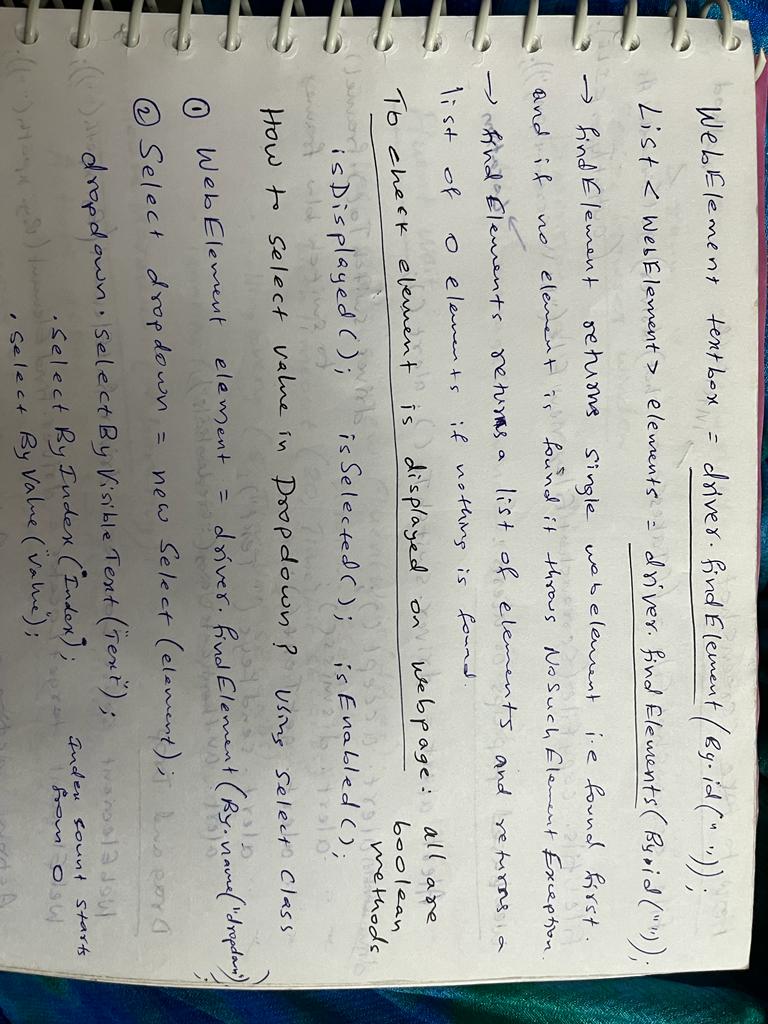 WebElement textbox = driver.findElement(By.id(" "));
List < WebElement > elements = driver.findElements(By.id(""));
→ findElement returns single webelement i.e found first.
and if no element is found it throws NoSuchElementException.
→ findElements returns a list of elements and returns a
list of 0 elements if nothing is found.
To check element is displayed on webpage: all are
boolean
methods
isDisplayed(); isSelected(); isEnabled();
How to select value in Dropdown? Using Select Class
① WebElement element = driver.findElement(By.name("dropdown"));
② Select dropdown = new Select (element);
dropdown.selectByVisibleText("Text");
.selectByIndex("Index"); Index count starts
from 0
.selectByValue("Value");